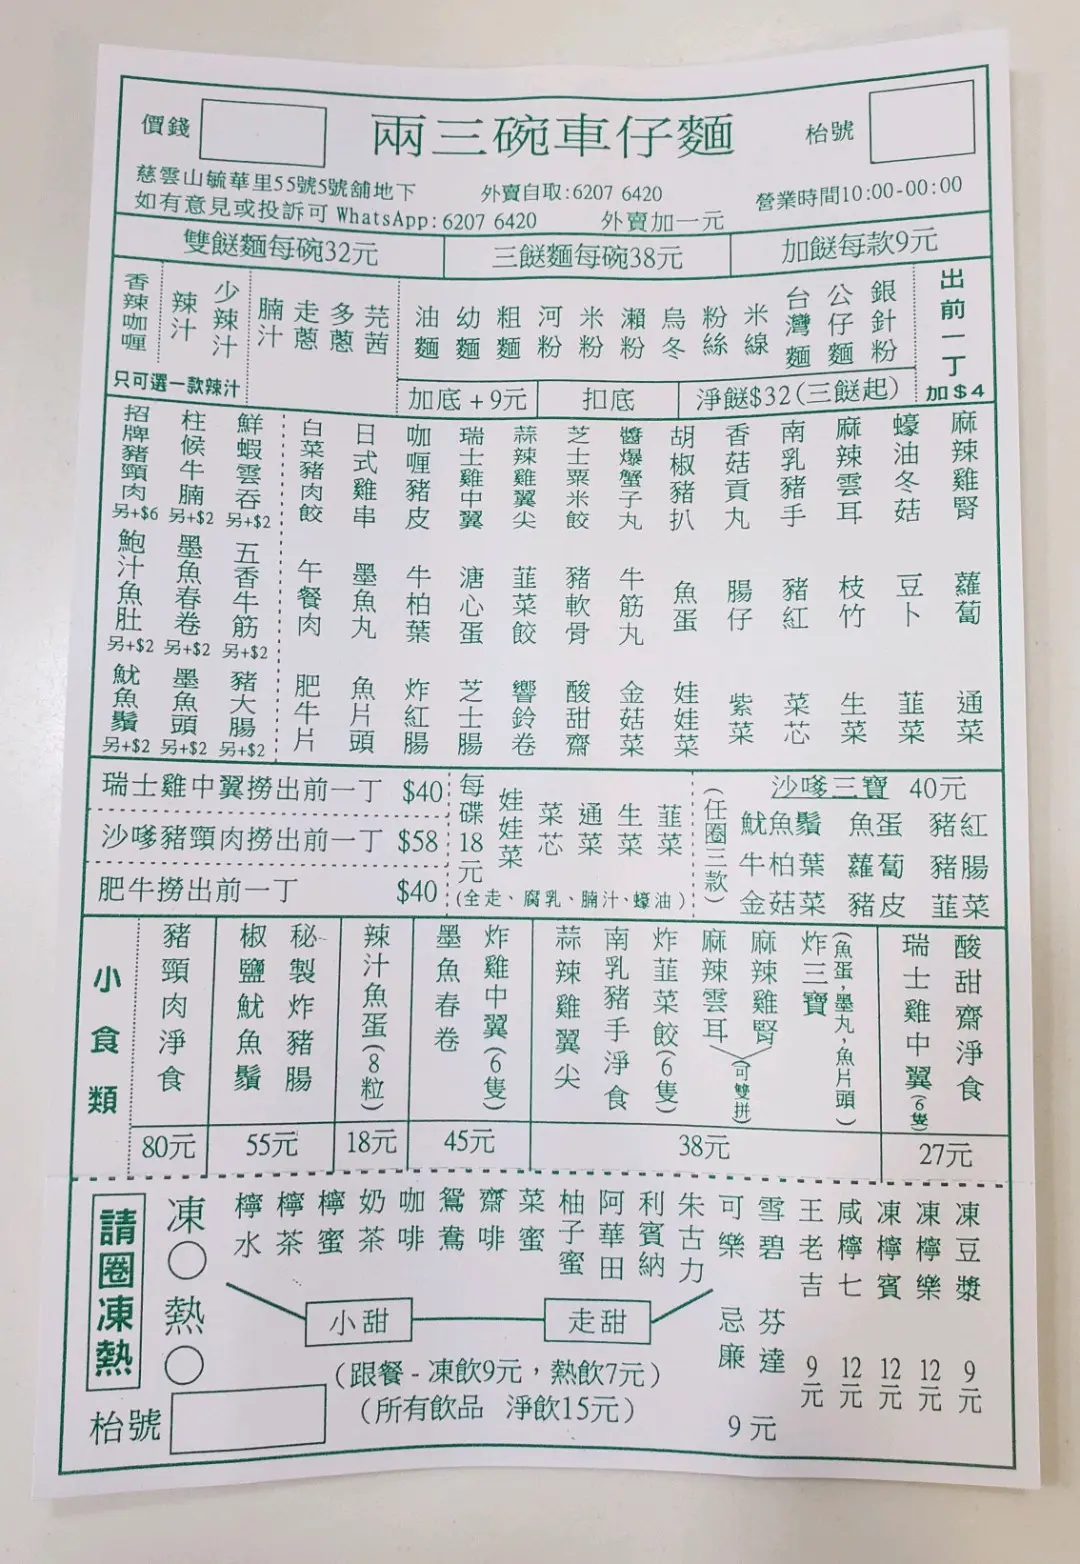 價錢
兩三碗車仔麵
枱號
慈雲山毓華里55號5號舖地下
外賣自取:6207 6420
營業時間10:00-00:00
如有意見或投訴可 WhatsApp:6207 6420
外賣加一元
雙餸麵每碗32元
三餸麵每碗38元
加餸每款9元
香辣咖喱
辣汁
少辣汁
只可選一款辣汁
腩汁
走蔥
多蔥
芫茜
油麵
幼麵
粗麵
河粉
米粉
瀨粉
烏冬
粉絲
米線
台灣麵
公仔麵
銀針粉
出前一丁
加$4
加底+9元
扣底
淨餸$32(三餸起)
招牌豬頸肉
另+$6
柱候牛腩
另+$2
鮮蝦雲吞
另+$2
白菜豬肉餃
日式雞串
咖喱豬皮
瑞士雞中翼
蒜辣雞翼尖
芝士粟米餃
醬爆蟹子丸
胡椒豬扒
香菇貢丸
南乳豬手
麻辣雲耳
蠔油冬菇
麻辣雞腎
鮑汁魚肚
另+$2
墨魚春卷
另+$2
五香牛筋
另+$2
午餐肉
墨魚丸
牛柏葉
溏心蛋
韮菜餃
豬軟骨
牛筋丸
魚蛋
腸仔
豬紅
枝竹
豆卜
蘿蔔
魷魚鬚
另+$2
墨魚頭
另+$2
豬大腸
另+$2
肥牛片
魚片頭
炸紅腸
芝士腸
響鈴卷
酸甜齋
金菇菜
娃娃菜
紫菜
菜芯
生菜
韮菜
通菜
瑞士雞中翼撈出前一丁 $40
沙嗲豬頸肉撈出前一丁 $58
肥牛撈出前一丁 $40
每碟18元
娃娃菜
菜芯
通菜
生菜
韮菜
(全走、腐乳、腩汁、蠔油)
(任圈三款)
沙嗲三寶 40元
魷魚鬚 魚蛋 豬紅
牛柏葉 蘿蔔 豬腸
金菇菜 豬皮 韮菜
小食類
豬頸肉淨食
80元
椒鹽魷魚鬚
秘製炸豬腸
55元
辣汁魚蛋(8粒)
18元
墨魚春卷
炸雞中翼(6隻)
45元
蒜辣雞翼尖
南乳豬手淨食
炸韮菜餃(6隻)
麻辣雲耳
麻辣雞腎
(可雙拼)
炸三寶
(魚蛋,墨丸,魚片頭)
38元
瑞士雞中翼(6隻)
酸甜齋淨食
27元
請圈凍熱
凍○
熱○
檸水
檸茶
檸蜜
奶茶
咖啡
鴛鴦
齋啡
菜蜜
柚子蜜
阿華田
利賓納
朱古力
可樂
雪碧
忌廉
芬達
9元
王老吉
9元
咸檸七
12元
凍檸賓
12元
凍檸樂
12元
凍豆漿
9元
小甜
走甜
(跟餐-凍飲9元,熱飲7元)
(所有飲品 淨飲15元)
枱號